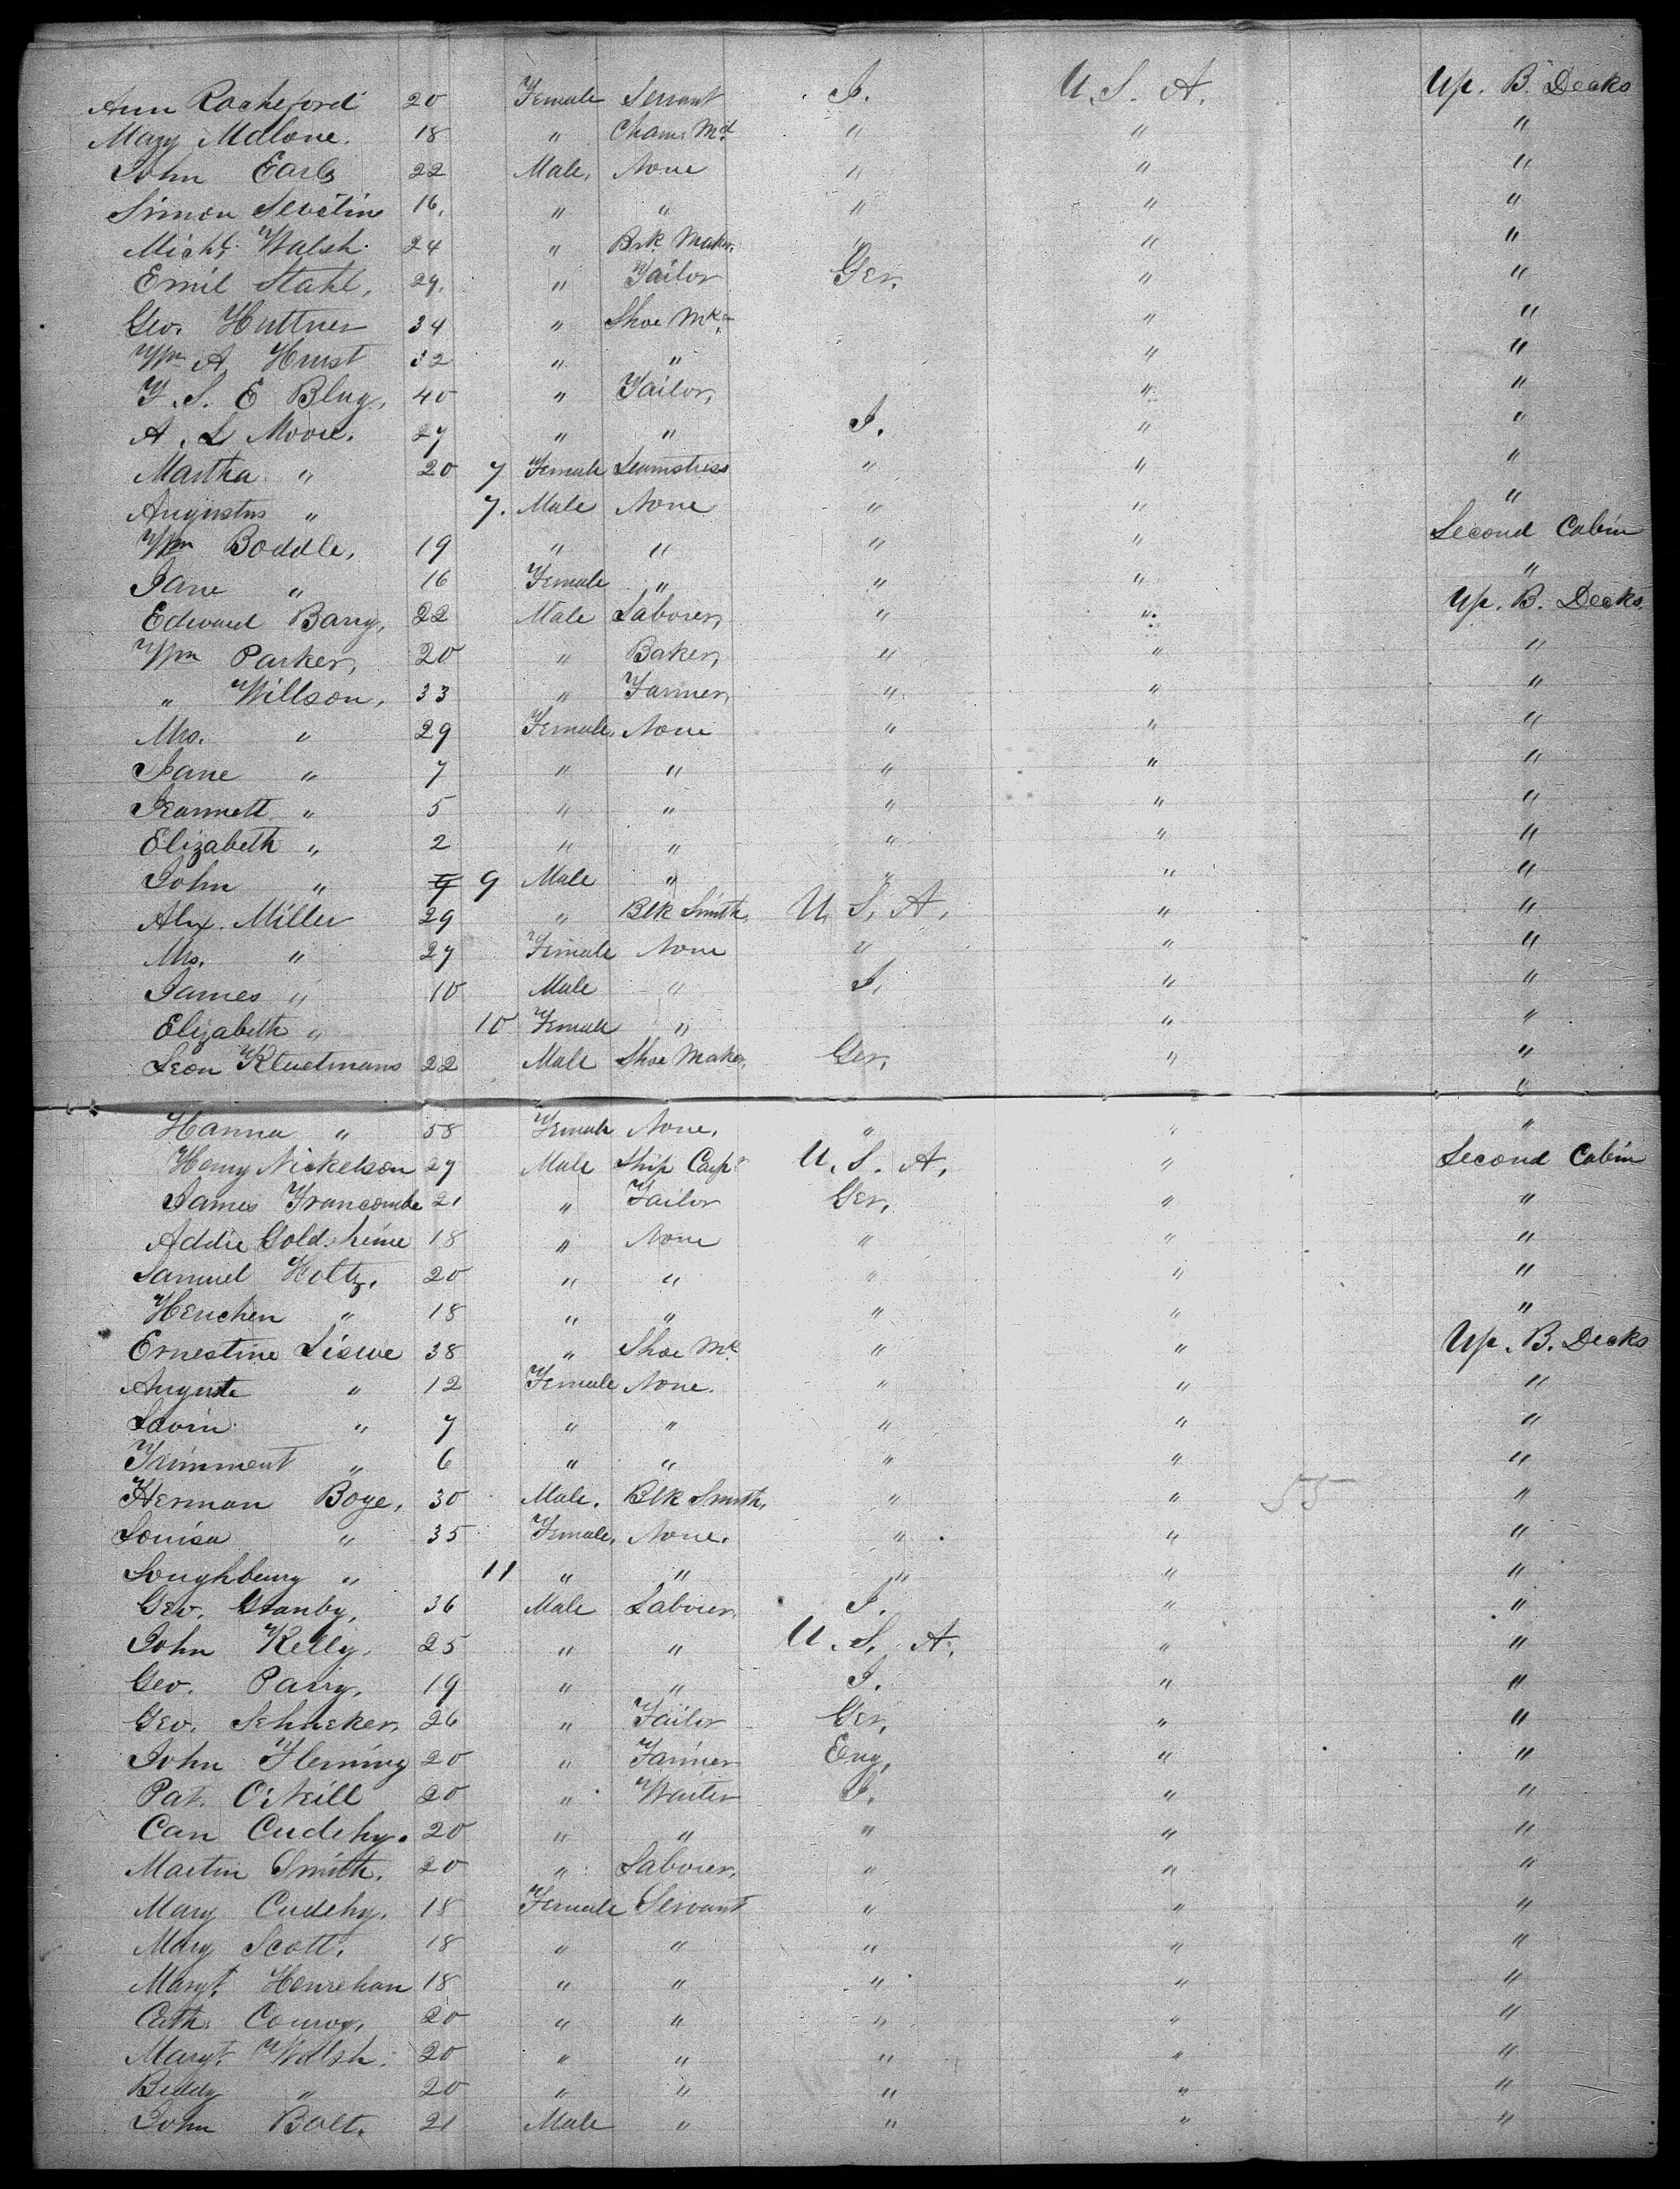 Ann Rocheford 20 Female Servant I. U. S. A. Up. B. Decks
Mary Malone. 18 " Cham. Md " " "
John Earls 22 Male, None " " "
Simon 16. " " " " "
Michl. Walsh 24 " Brk Maker, " " "
Emil Stahl, 29. " Tailor Ger. " "
Geo. Huttner 34 " Shoe Mkr " "
Wm A. Hurst 32 " " " "
F. S. E Blug, 40 " Tailor, " "
A. L Moore. 27 " " I. " "
Martha " 20 7 Female Seamstress " " "
Augustus " 7. Male None " " "
Wm Boddle, 19 " " " " Second Cabin
Jane " 16 Female " " " "
Edward Barry, 22 Male Laborer, " " Up. B. Decks
Wm Parker, 20 " Baker, " " "
" Willson, 33 " Farmer, " " "
Mrs. " 29 Female, None " " "
Jane " 7 " " " " "
Jeannett " 5 " " " " "
Elizabeth " 2 " " " " "
John " 9 Male " " " "
Alex. Miller 29 " Blk Smith, U. S. A. " "
Mrs. " 27 Female None " " "
James " 10 Male " I. " "
Elizabeth " 10 Female " " "
Leon 22 Male Shoe Maker, Ger, " "
"
Hanna " 58 Female None, " " "
Henry Nickelson 27 Male Ship Carpr U. S. A. " Second Cabin
James Francombe 21 " Tailor Ger, " "
Addie Gold. 18 " None " " "
Samuel Holtz, 20 " " " " "
Henchen " 18 " " " " "
Ernestine Liewe 38 " Shoe Mk " " Up. B. Decks
Auguste " 12 Female None. " " "
Lavin " 7 " " " " "
" 6 " " " " "
Herman Boye, 30 Male. Blk Smith, " " 55 "
Louisa " 35 Female, None. " " "
" 11 " " " " "
Geo. Granby, 36 Male Laborer, I. " "
John Kelly, 25 " " U. S. A. " "
Geo. Parry, 19 " " I. " "
Geo. Schneker, 26 " Tailor Ger, " "
John Fleming 20 " Farmer Eng, " "
Pat. O'Neill 20 " Waiter I. " "
Can Cudehy. 20 " " " " "
Martin Smith. 20 " Laborer, " " "
Mary Cudehy, 18 Female Servant " " "
Mary Scott, 18 " " " " "
Margt. Henrehan 18 " " " " "
Cath. Conroy, 20 " " " " "
Margt. Walsh. 20 " " " " "
Biddy " 20 " " " " "
John Bolt. 21 Male " " " "